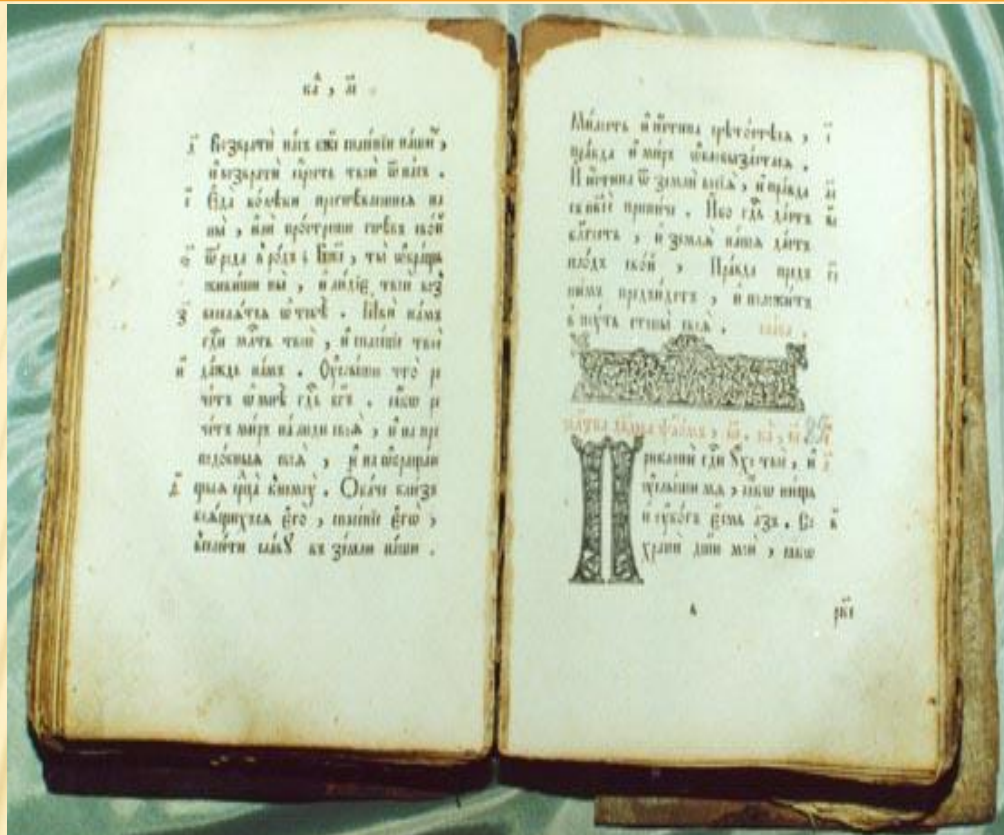 Возврати́ на́съ бж҃е спасенїи на́ши,
и҆ возвратѝ ꙗ҆́рость твою̀ ѿ на́съ.
Е҆да̀ во́вѣки прогнѣваешисѧ на
ны̀, и҆лѝ простреши гнѣвъ сво́й
ѿ ро́да в ро́дъ; Бж҃е, ты̀ ѡ҆бра́щь
живи́ши ны̀, и҆ лю́дїе твоѝ воз
веселѧ́тсѧ ѡ҆ тебѣ̀. Ꙗ҆вѝ на́мъ
гдⷭ҇и млⷭ҇ть твою̀, и҆ спасе́нїе твоѐ
да́ждь на́мъ. Оу҆слы́шꙋ что̀ ре
че́тъ ѡ҆ мнѣ̀ гдⷭ҇ь бг҃ъ. ꙗ҆́кѡ ре
че́тъ ми́ръ на лю́ди своѧ̀, и҆ на пре
подо́бныѧ своѧ̀, и҆ на ѡ҆браща́ю
щыѧ срⷣца̀ к немꙋ̀. Ѻ҆ба́че бли́зъ
боѧ́щихсѧ є҆гѡ̀, спасе́нїе є҆гѡ̀,
всели́ти сла́вꙋ въ зе́мли на́шей.
Ми́лость и҆ и҆́стина срѣто́стѣсѧ,
пра́вда и҆ ми́ръ ѡ҆блобыза́стасѧ.
И҆́стина ѿ землѝ возсїѧ̀, и҆ пра́вда
съ нб҃сѐ прини́че. И҆́бо гдⷭ҇ь да́стъ
бл҃гость, и҆ землѧ̀ на́ша да́стъ
пло́дъ сво́й, Пра́вда пред̾
ни́мъ пред̾и́детъ, и҆ положи́тъ
в пꙋ́ть стопы̀ своѧ̀. сла́ва.
Приклонѝ гдⷭ҇и ᲂу҆́хо твоѐ, и҆
ᲂу҆слы́ши мѧ̀, ꙗ҆́кѡ ни́щь
и҆ ᲂу҆бо́гъ є҆́смь а҆́зъ. Со
хранѝ дш҃ꙋ мою̀, ꙗ҆́кѡ